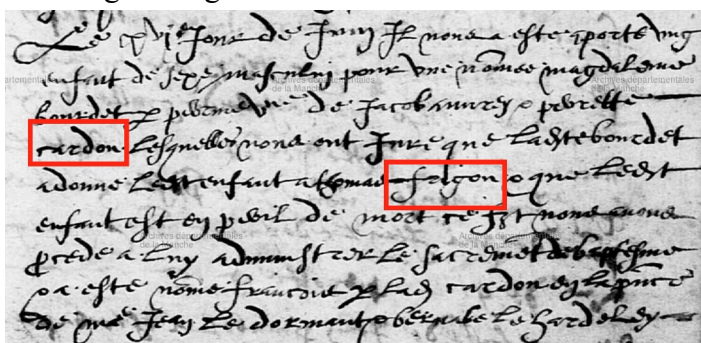 Le xvi^e Jour de Juin Il nous a este aporte ung
enfant de sexe masculin pour une nomee magdaleine
bourdet p perrine de Jacob p perette
cardon lesquelles nous ont Jure que ladite bourdet
a donne ledit enfant a thomas folgon & que ledit
enfant est en peril de mort ce fait nous avons
procede a luy administrer le sacremet de baptesme
& a este nome francois p lad cardon en la pnce
de me Jean Le dormant & bernabe le hardeley
Archives départementales
de la Manche